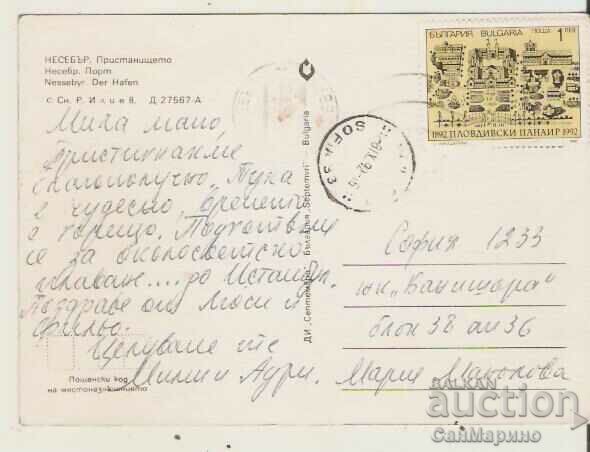 НЕСЕБЪР. Пристанището
Несебр. Порт
Nessebyr. Der Hafen
с. Сн. Р. Илиев. Д-27567-А
Мила мамо,
Пристигнахме
благополучно. Тука
е чудесно, времето
е горещо. Подготвяме
се за околосветско
плаване.... до Истанбул.
Поздрави от Люси и
Целуваме те
Мими и Аури.
Пощенски код
на местоназначението
ДИ „Септември" България „Septemvri" Bulgaria
SOFIA
БЪЛГАРИЯ BULGARIA ПОЩА 1 ЛЕВ
1892 ПЛОВДИВСКИ ПАНАИР 1992
София 1233
жк „Банишора"
блок 38 ап 36
Мария Манолова
BALKAN
auction
СанМарино